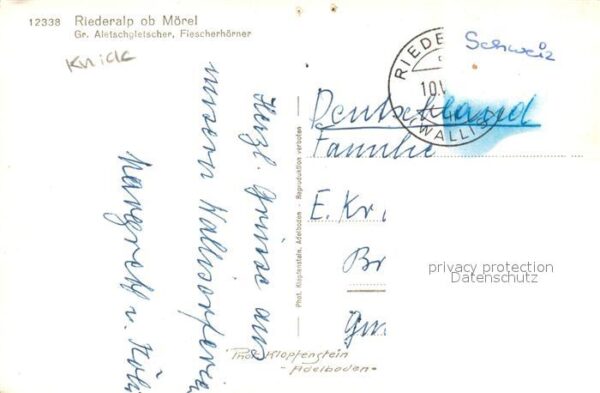 12338 Riederalp ob Mörel
Gr. Aletschgletscher, Fiescherhörner
Knick
Herzl. Grüsse aus
unseren
Phot. Klopfenstein, Adelboden - Reproduktion verboten
RIEDE
10.V
(WALLIS
Schweiz
Deutschland
Familie
E. Kr
Br
Gm
privacy protection
Datenschutz
Phot. Klopfenstein
- Adelboden -